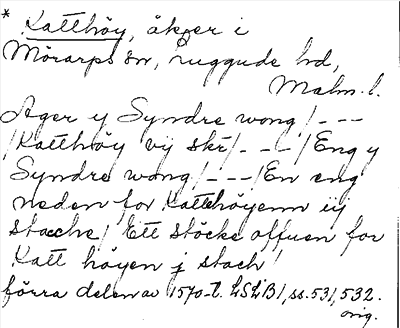 * Katthöy, åker i
Mörarps sn, Luggude hd,
Malm. l.
Ager y Syndre wong /---
/Katthöy vij skr/---/Eng y
Syndre wong/---/En eng
neden for Kattehöyenn iij
stacche/ Ett stöcke offuen for
Katt höyen j stach/
förra delen av 1570-t. LSLB1, ss. 531, 532.
orig.